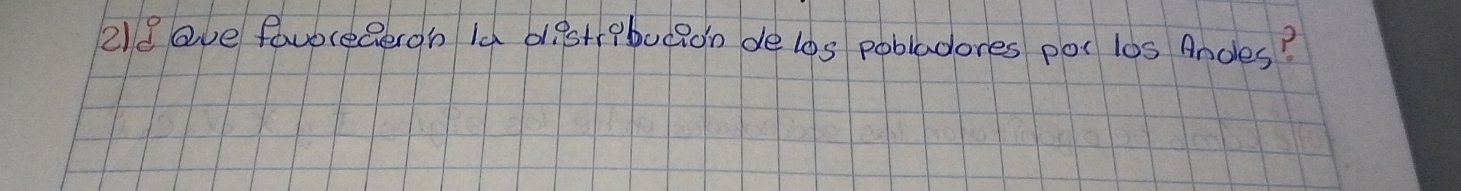 2) ¿Que favorecieron la distribución de los pobladores por los Andes?